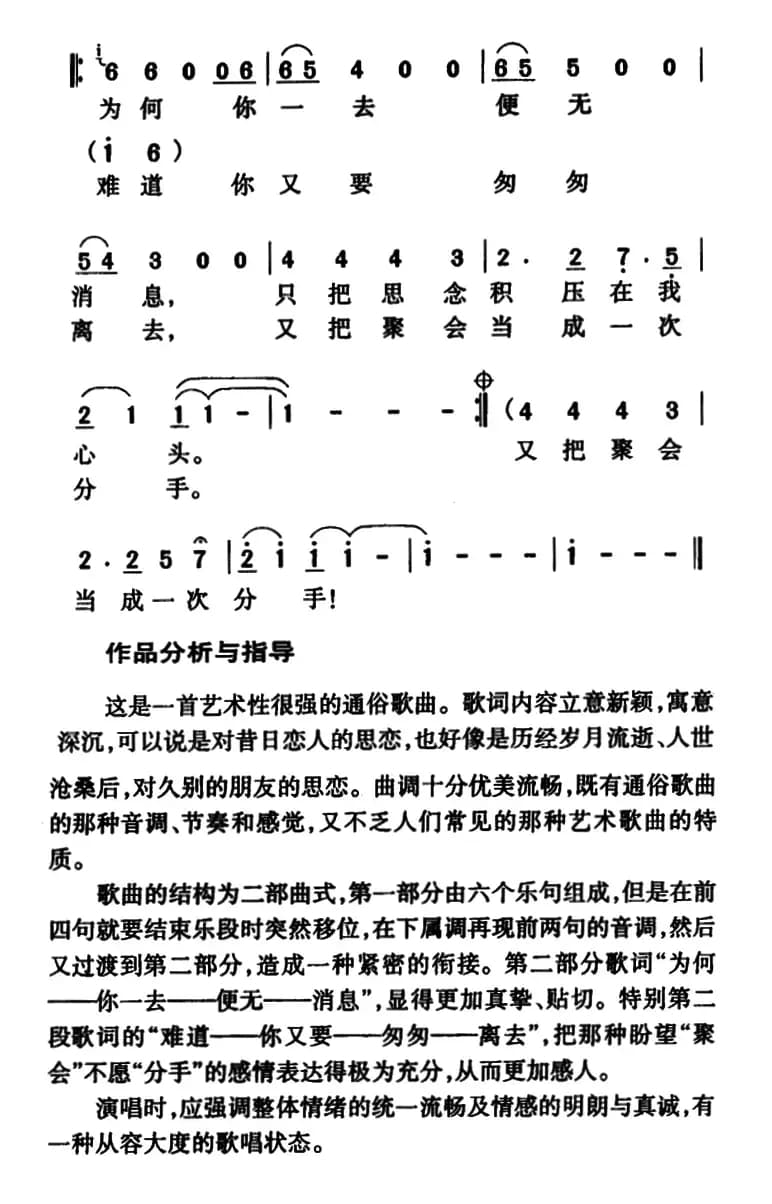 i
‖: 6 6 0 0 6 | 6 5 4 0 0 | 6 5 5 0 0 |
为何 你一去 便无
(i 6)
难道 你又要 匆匆
5 4 3 0 0 | 4 4 4 3 | 2 . 2 7 . 5 |
消息, 只把思念积压在我
离去, 又把聚会当成一次
2 1 1 1 - | 1 - - - :‖ (4 4 4 3 |
心 头。 又把聚会
分 手。
2 . 2 5 7 | 2 i i i - | i - - - | i - - ‖
当成一次分 手!
作品分析与指导
这是一首艺术性很强的通俗歌曲。歌词内容立意新颖,寓意
深沉,可以说是对昔日恋人的思恋,也好像是历经岁月流逝、人世
沧桑后,对久别的朋友的思恋。曲调十分优美流畅,既有通俗歌曲
的那种音调、节奏和感觉,又不乏人们常见的那种艺术歌曲的特
质。
歌曲的结构为二部曲式,第一部分由六个乐句组成,但是在前
四句就要结束乐段时突然移位,在下属调再现前两句的音调,然后
又过渡到第二部分,造成一种紧密的衔接。第二部分歌词“为何
——你一去——便无——消息”,显得更加真挚、贴切。特别第二
段歌词的“难道——你又要——匆匆——离去”,把那种盼望“聚
会”不愿“分手”的感情表达得极为充分,从而更加感人。
演唱时,应强调整体情绪的统一流畅及情感的明朗与真诚,有
一种从容大度的歌唱状态。